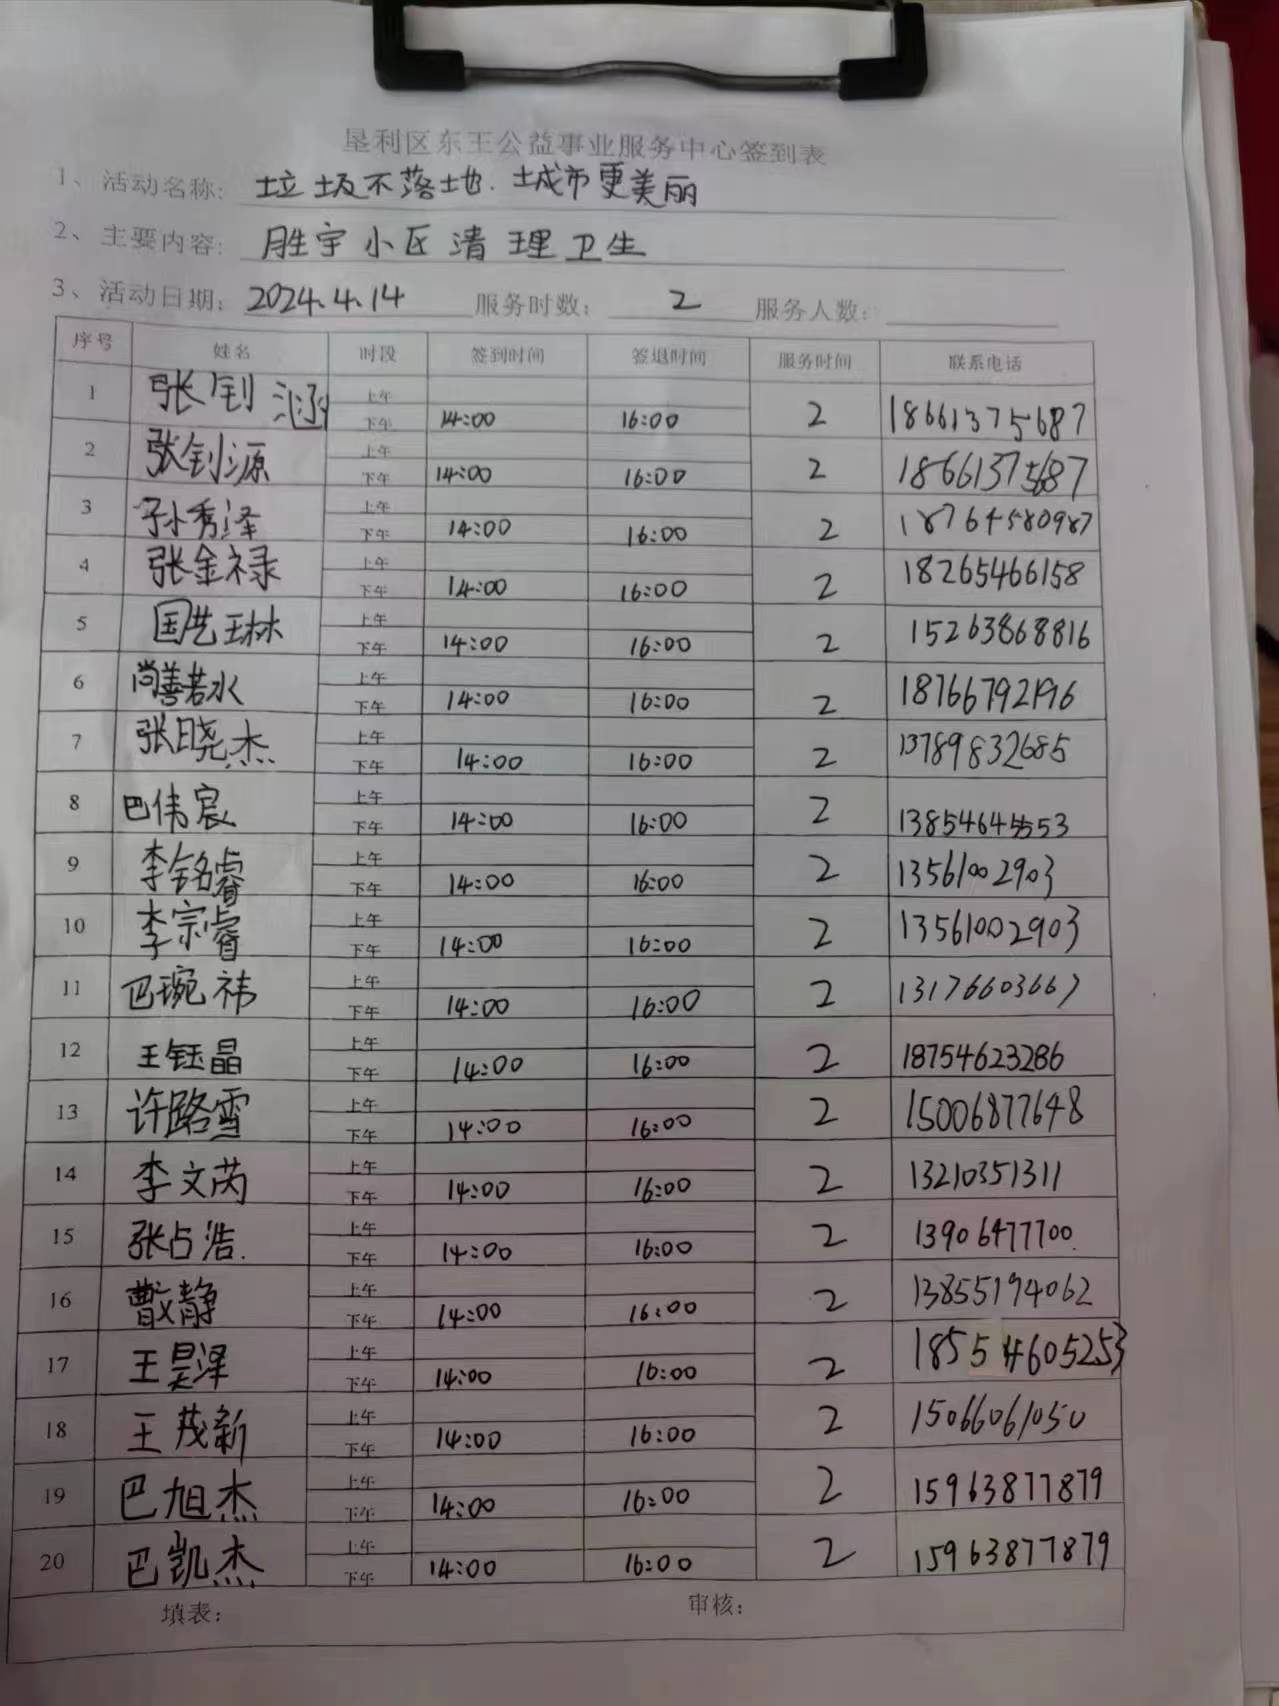 垦利区东王公益事业服务中心签到表
1、活动名称: 垃圾不落地.城市更美丽
2、主要内容: 胜宇小区清理卫生
3、活动日期: 2024.4.14 服务时数: 2 服务人数:
序号 姓名 时段 签到时间 签退时间 服务时间 联系电话
1 张钊涵 上午 下午 14:00 16:00 2 18661375687
2 张钊源 上午 下午 14:00 16:00 2 18661375687
3 孙秀泽 上午 下午 14:00 16:00 2 18764580987
4 张金禄 上午 下午 14:00 16:00 2 18265466158
5 国艺琳 上午 下午 14:00 16:00 2 15263868816
6 尚善若水 上午 下午 14:00 16:00 2 18766792196
7 张晓杰 上午 下午 14:00 16:00 2 13789832685
8 巴伟宸 上午 下午 14:00 16:00 2 13854645553
9 李铭睿 上午 下午 14:00 16:00 2 13561002903
10 李宗睿 上午 下午 14:00 16:00 2 13561002903
11 巴琬祎 上午 下午 14:00 16:00 2 13176603667
12 王钰晶 上午 下午 14:00 16:00 2 18754623286
13 许路雪 上午 下午 14:00 16:00 2 15006877648
14 李文芮 上午 下午 14:00 16:00 2 13210351311
15 张占浩. 上午 下午 14:00 16:00 2 13906477700.
16 曹静 上午 下午 14:00 16:00 2 13855194062
17 王昊泽 上午 下午 14:00 16:00 2 18554605253
18 王茂新 上午 下午 14:00 16:00 2 15066061050
19 巴旭杰 上午 下午 14:00 16:00 2 15963877879
20 巴凯杰 上午 下午 14:00 16:00 2 15963877879
填表: 审核: